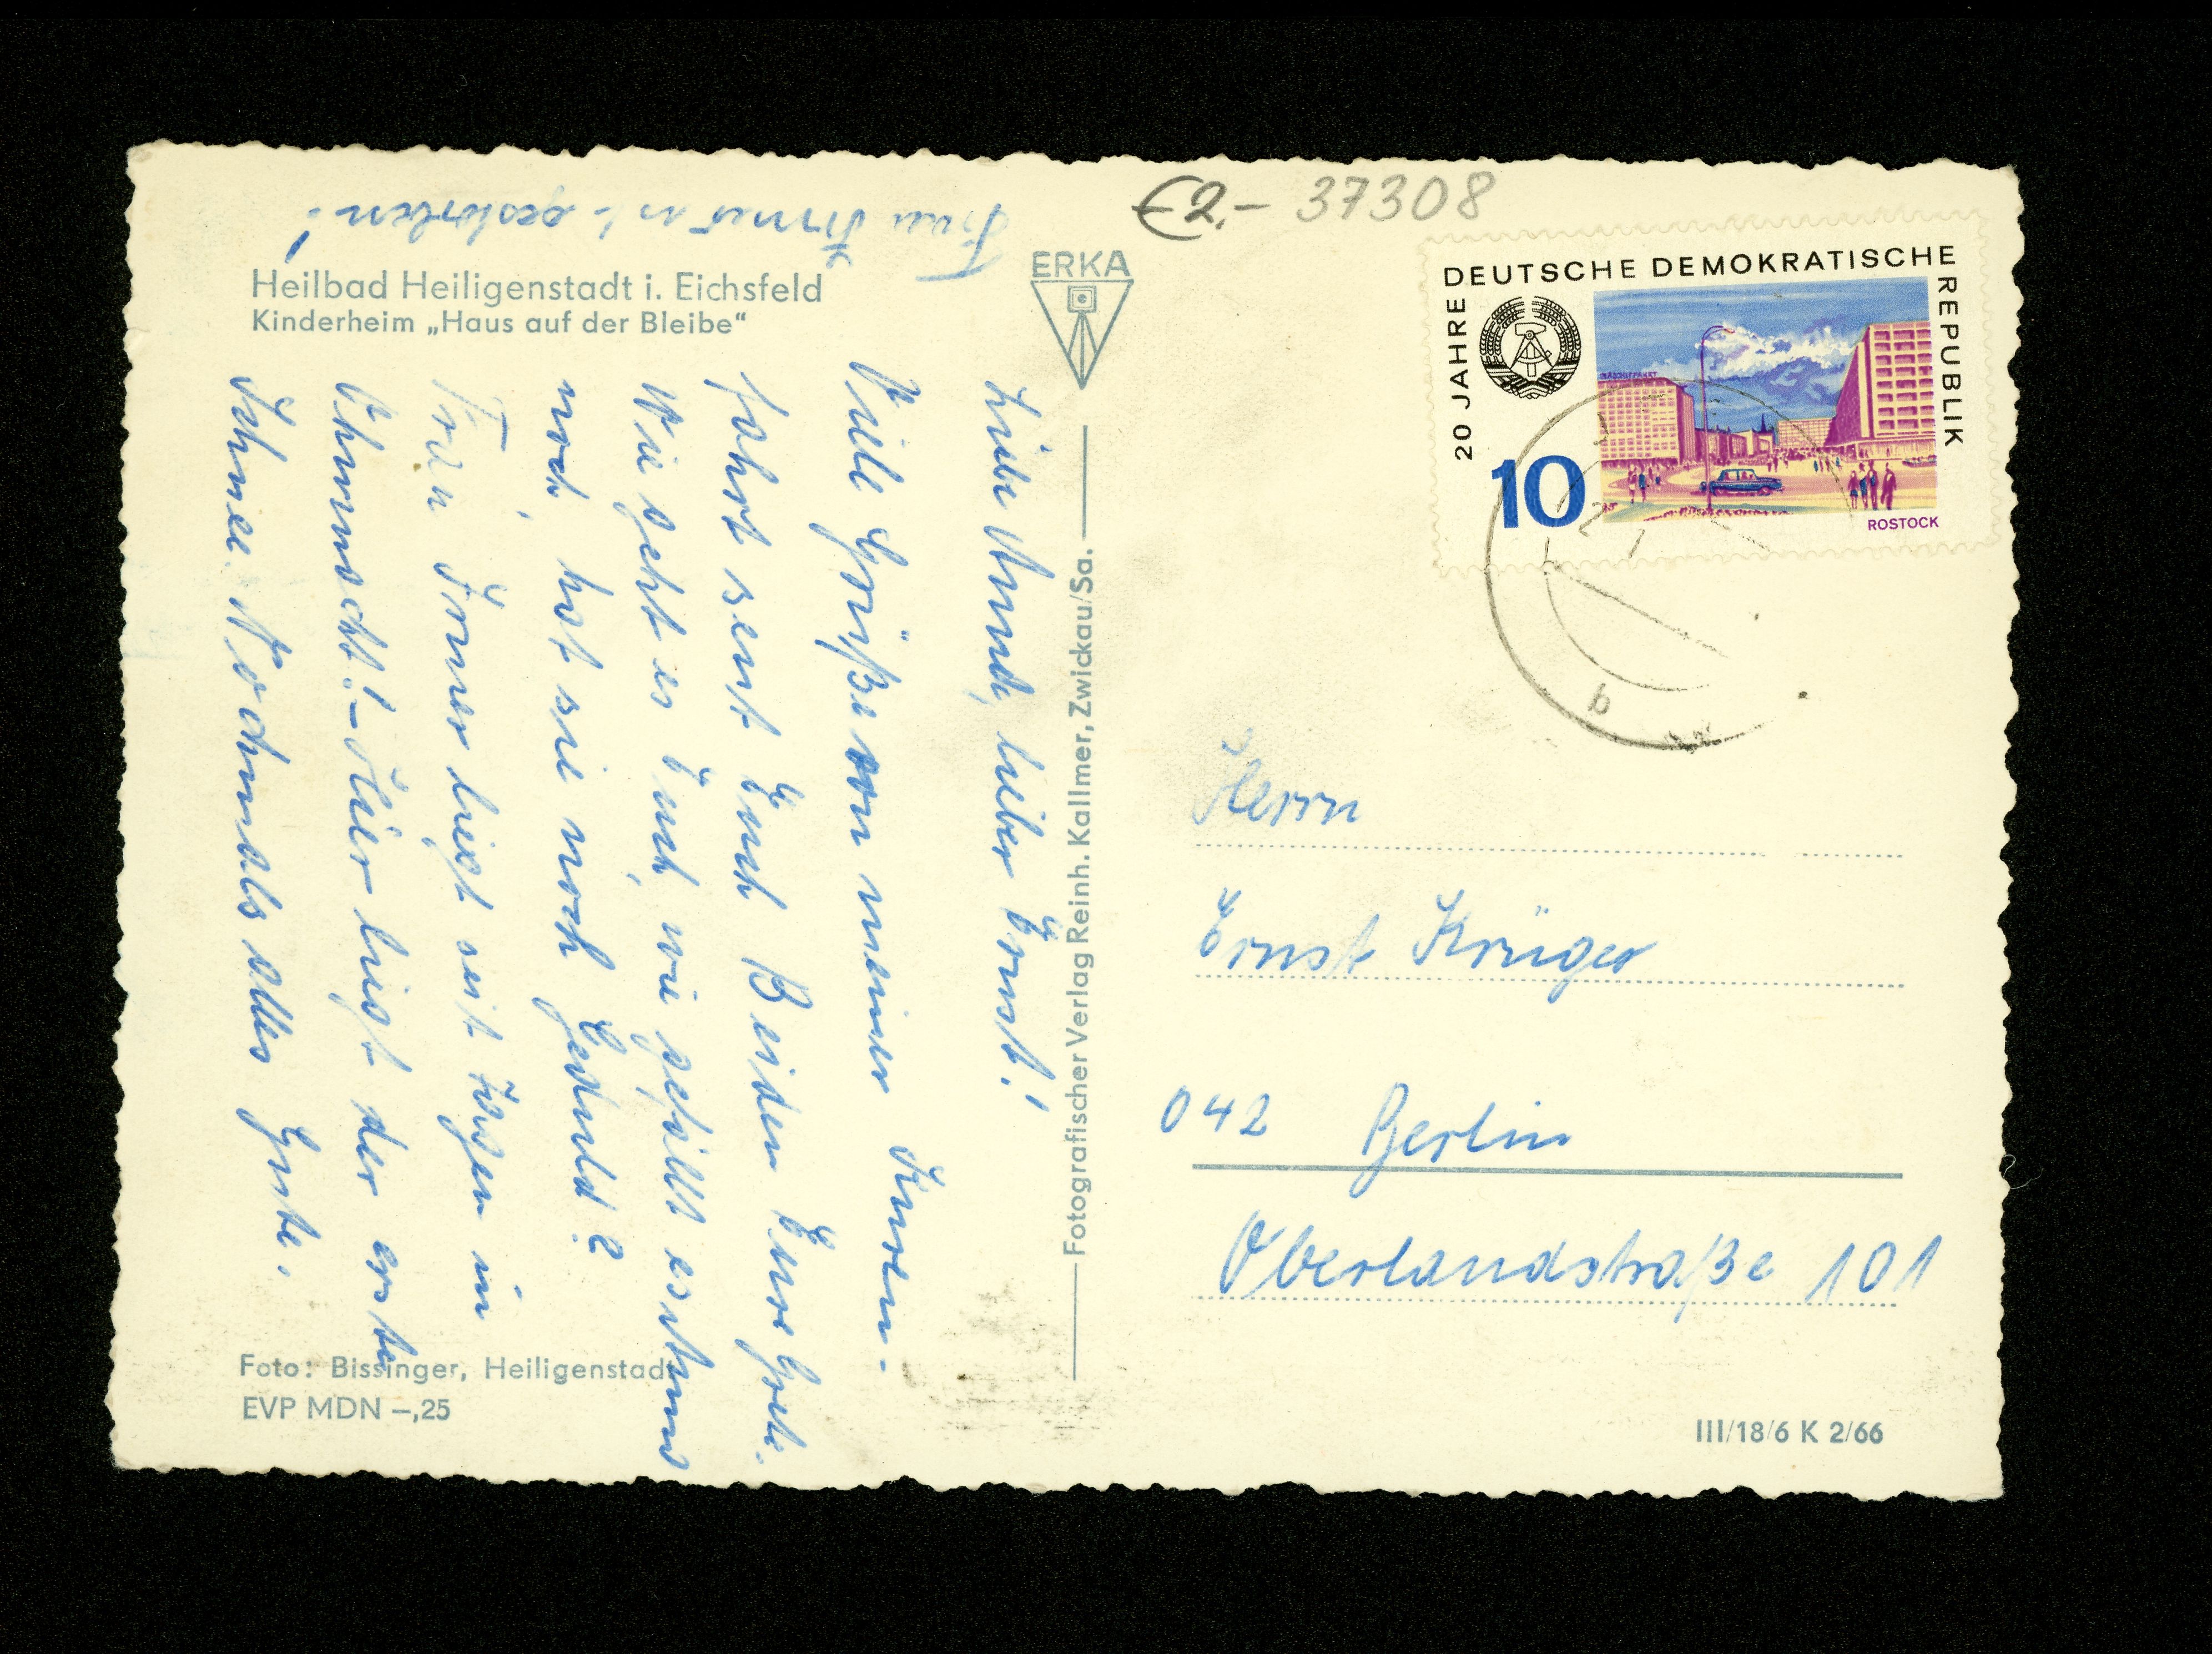 Frau Exner ist gestorben!
Heilbad Heiligenstadt i. Eichsfeld
Kinderheim „Haus auf der Bleibe“
Liebe lieber Ernst!
Viele Grüße von meiner Kurein-
fahrt sent Euch Beiden Eure Grete.
Wie geht es Euch, wie gefällt es
noch, hat sie noch Geduld?
Frau liegt seit Tagen in
Ohnmacht! – Hier liegt der erste
Schnee. Nochmals alles Gute.
Foto: Bissinger, Heiligenstadt
EVP MDN –,25
ERKA
Fotografischer Verlag Reinh. Kallmer, Zwickau/Sa.
€2.- 37308
20 JAHRE DEUTSCHE DEMOKRATISCHE REPUBLIK
10
ROSTOCK
b
Herrn
Ernst Krüger
042 Berlin
Oberlandstraße 101
III/18/6 K 2/66